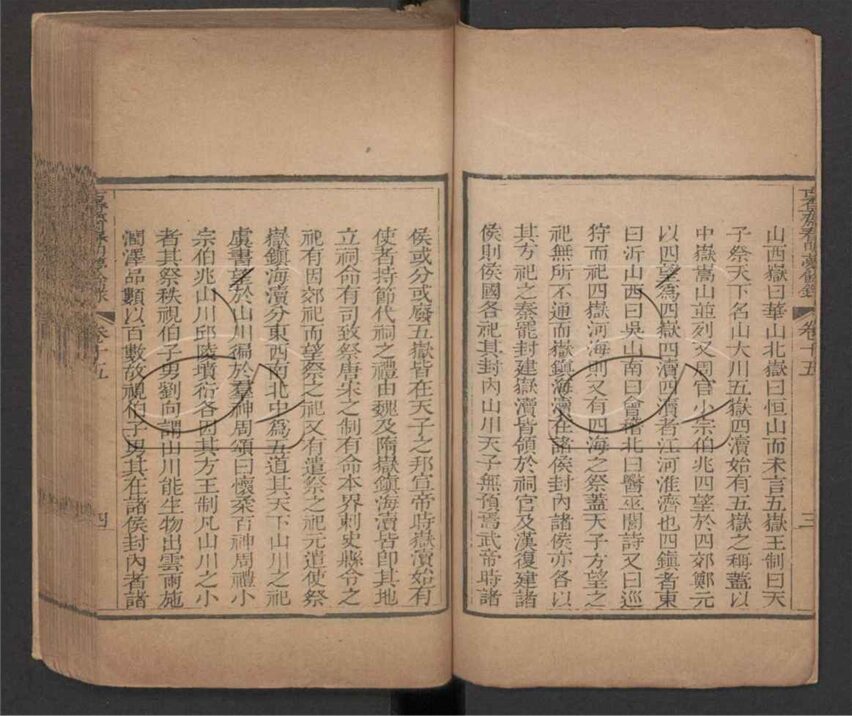 山西嶽曰華山北嶽曰恒山而未言五嶽王制曰天
子祭天下名山大川五嶽四瀆始有五嶽之稱蓋以
中嶽嵩山並列又周官小宗伯兆四望於四郊鄭元
以四望為四嶽四瀆四瀆者江河淮濟也四鎮者東
曰沂山西曰吳山南曰會稽北曰醫巫閭詩又曰巡
狩而祀四嶽河海則又有四海之祭蓋天子方望之
祀無所不通而嶽鎮海瀆在諸侯封內諸侯亦各以
其方祀之秦罷封建嶽瀆皆領於祠官及漢復建諸
侯則侯國各祀其封內山川天子無預焉武帝時諸
卷十五
三
侯或分或廢五嶽皆在天子之邦宣帝時嶽瀆始有
使者持節代祠之禮由魏及隋嶽鎮海瀆皆即其地
立祠命有司致祭唐宋之制有命本界刺史縣令之
祀有因郊祀而望祭之祀又有遣祭之祀元遣使祭
嶽鎮海瀆分東西南北中為五道其天下山川之祀
虞書望於山川徧於羣神周頌曰懷柔百神周禮小
宗伯兆山川邱陵墳衍各因其方王制凡山川之小
者其祭秩視伯子男劉向謂山川能生物出雲雨施
潤澤品類以百數故視伯子男其在諸侯封內者諸
春明夢餘錄
卷十五
四